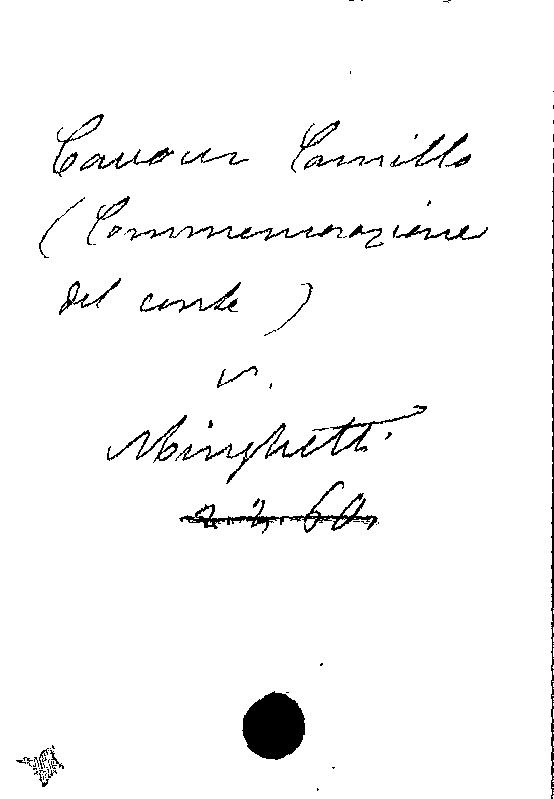 Cavour Camillo
(Commemorazione
del conte)
v.
Minghetti
2. 2. 60.